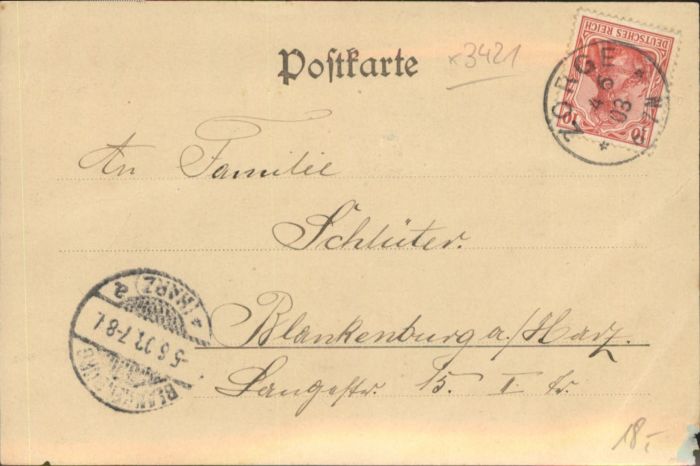 Postkarte
x3421
DEUTSCHES REICH
10 10
ZORGE
4 6
03
* *
An Familie
Schlüter.
Blankenburg a/Harz.
Langestr. 15. II Tr.
BLANKENBURG
-5.6.03.7-8
* (HARZ) a
18,-